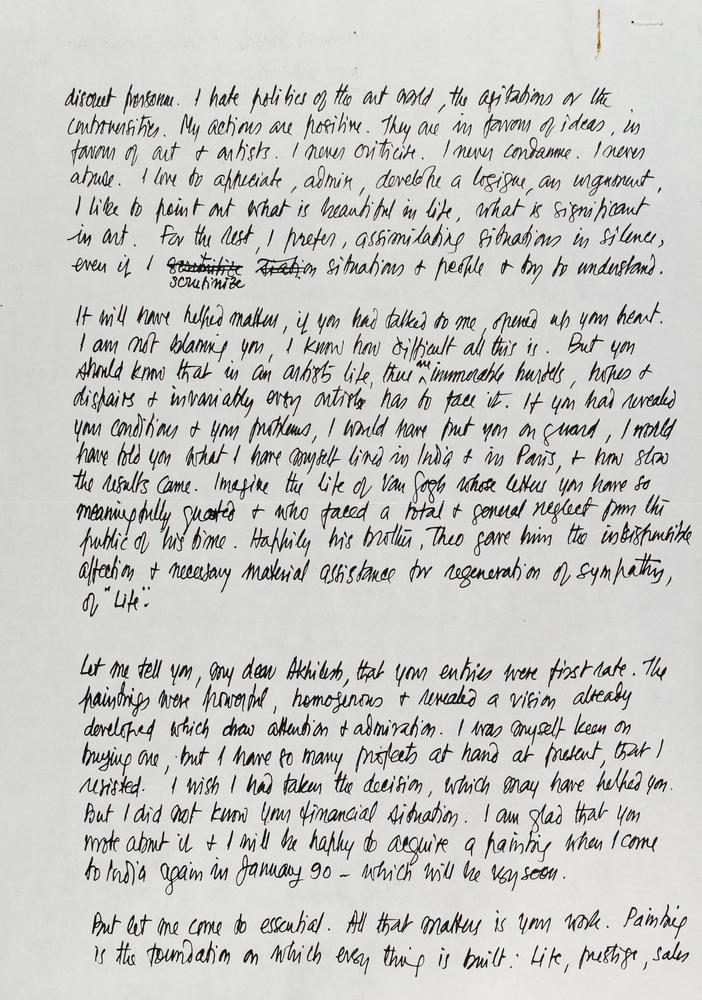 discreet personne. I hate politics of the art world, the agitations or the
controversities. My actions are positive. They are in favour of ideas, in
favour of art & artists. I never criticise. I never condamne. I never
abuse. I love to appreciate, admire, develope a logique, an urgnoment,
I like to point out what is beautiful in life, what is significant
in art. For the rest, I prefer, assimilating situations in silence,
even if I scrutinize situations & people & try to understand.
It will have helped matters, if you had talked to me, opened up your heart.
I am not blaming you, I know how difficult all this is. But you
should know that in an artists life, there are immumorable hurdels, hopes &
dispairs & invariably every artist has to face it. If you had revealed
your conditions & your problems, I would have put you on guard, I would
have told you what I have myself lived in India & in Paris, & how slow
the results came. Imagine the life of Van Gogh whose letters you have so
meaningfully quoted & who faced a total & general neglect from the
public of his time. Happily his brother, Theo gave him the indispensible
affection & necessary material assistance for regeneration of sympathy,
of "Life".
Let me tell you, my dear Akhilesh, that your entries were first rate. The
paintings were powerful, homogenous & revealed a vision already
developed which draw attention & admiration. I was myself keen on
buying one, but I have so many projects at hand at present, that I
resisted. I wish I had taken the decision, which may have helped you.
But I did not know your financial situation. I am glad that you
wrote about it & I will be happy to acquire a painting when I come
to India again in January 90 – which will be very soon.
But let me come to essential. All that matters is your work. Painting
is the foundation on which every thing is built: Life, prestige, sales